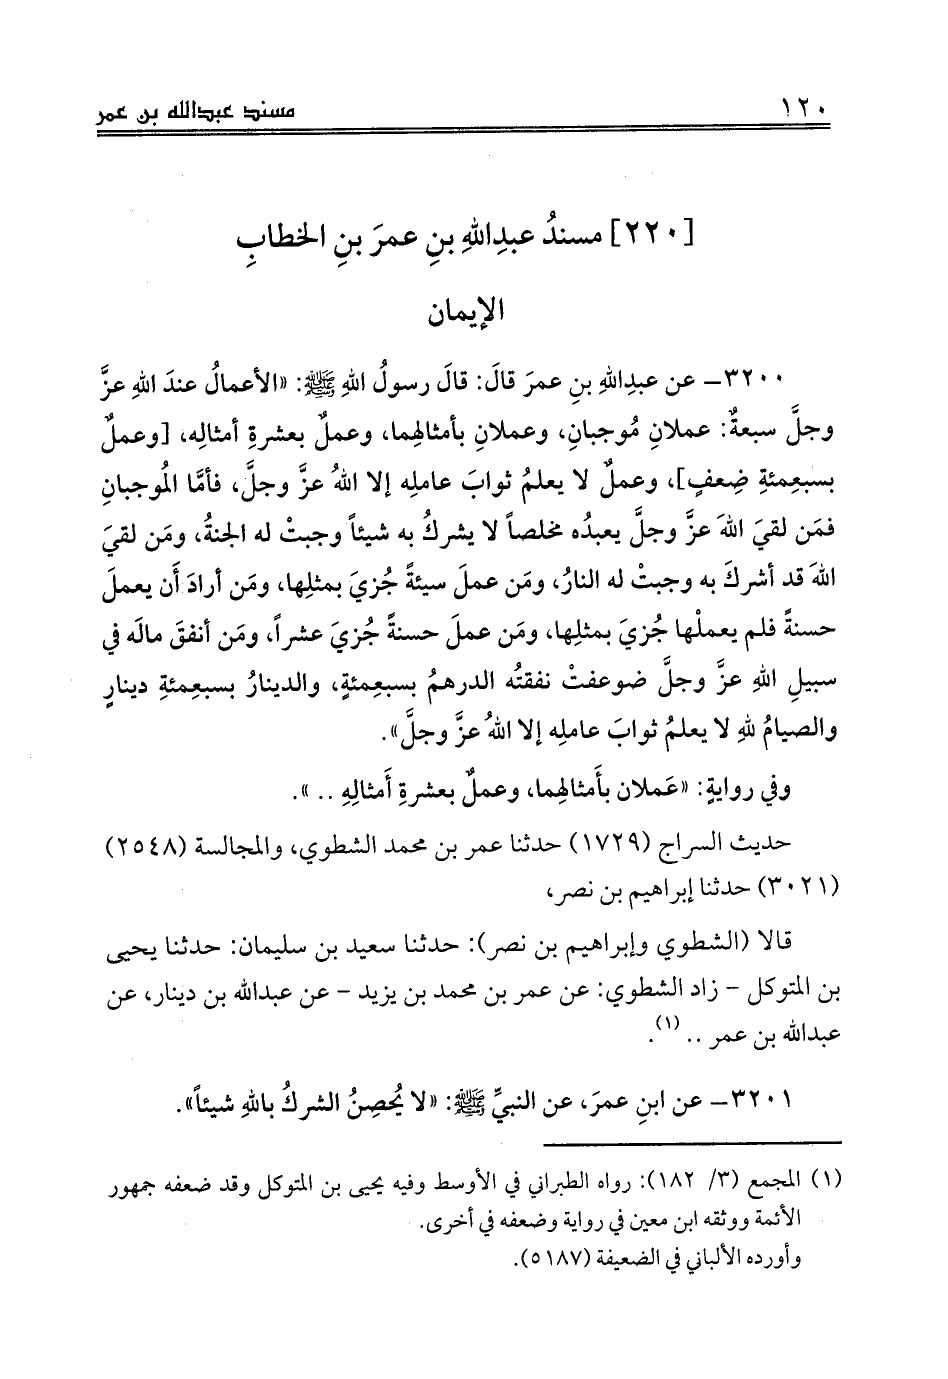 ١٢٠
مسند عبدالله بن عمر
[٢٢٠] مسندُ عبدِاللهِ بنِ عمرَ بنِ الخطابِ
الإيمان
٣٢٠٠- عن عبدِاللهِ بنِ عمرَ قالَ: قالَ رسولُ اللهِ ﷺ: «الأعمالُ عندَ اللهِ عزَّ
وجلَّ سبعةٌ: عملانِ مُوجبانِ، وعملانِ بأمثالهِما، وعملٌ بعشرةِ أمثالِه، [وعملٌ
بسبعِمئةِ ضِعفٍ]، وعملٌ لا يعلمُ ثوابَ عاملِه إلا اللهُ عزَّ وجلَّ، فأمَّا المُوجبانِ
فمَن لقيَ اللهَ عزَّ وجلَّ يعبدُه مخلصاً لا يشركُ به شيئاً وجبتْ له الجنةُ، ومَن لقيَ
اللهَ قد أشركَ به وجبتْ له النارُ، ومَن عملَ سيئةً جُزيَ بمثلِها، ومَن أرادَ أَن يعملَ
حسنةً فلم يعملْها جُزيَ بمثلِها، ومَن عملَ حسنةً جُزيَ عشراً، ومَن أنفقَ مالَه في
سبيلِ اللهِ عزَّ وجلَّ ضوعفتْ نفقتُه الدرهمُ بسبعِمئةٍ، والدينارُ بسبعِمئةِ دينارٍ
والصيامُ للهِ لا يعلمُ ثوابَ عاملِه إلا اللهُ عزَّ وجلَّ».
وفي روايةٍ: «عَملان بأَمثالهِما، وعملٌ بعشرةِ أَمثالِهِ .. ».
حديث السراج (١٧٢٩) حدثنا عمر بن محمد الشطوي، والمجالسة (٢٥٤٨)
(٣٠٢١) حدثنا إبراهيم بن نصر،
قالا (الشطوي وإبراهيم بن نصر): حدثنا سعيد بن سليمان: حدثنا يحيى
بن المتوكل - زاد الشطوي: عن عمر بن محمد بن يزيد - عن عبدالله بن دينار، عن
عبدالله بن عمر .. (١).
٣٢٠١- عن ابنِ عمرَ، عن النبيِّ ﷺ: «لا يُحصِنُ الشركُ باللهِ شيئاً».
(١) المجمع (٣/ ١٨٢): رواه الطبراني في الأوسط وفيه يحيى بن المتوكل وقد ضعفه جمهور
الأئمة ووثقه ابن معين في رواية وضعفه في أخرى.
وأورده الألباني في الضعيفة (٥١٨٧).